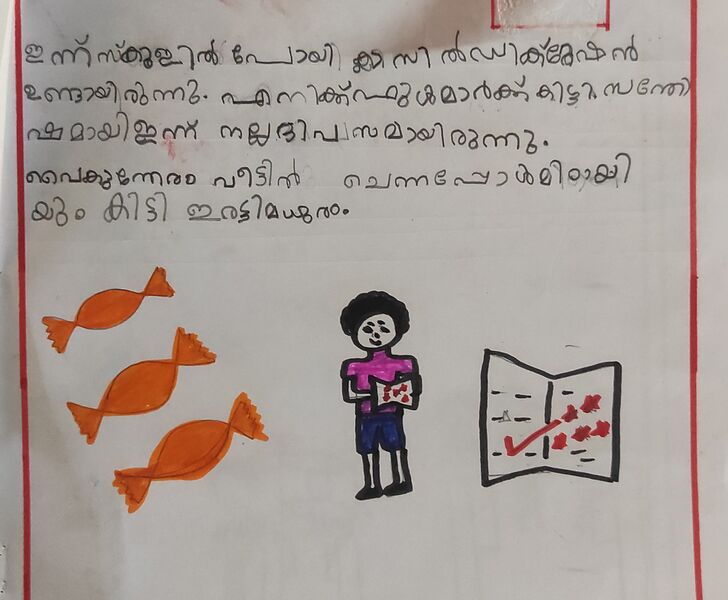 ഇന്ന് സ്കൂളിൽ പോയി ക്ലാസിൽ ഡിക്റ്റേഷൻ
ഉണ്ടായിരുന്നു. എനിക്ക് ഫുൾമാർക്ക് കിട്ടി സന്തോ
ഷമായി ഇന്ന് നല്ല ദിവസമായിരുന്നു.
വൈകുന്നേരം വീട്ടിൽ ചെന്നപ്പോൾ മിഠായി
യും കിട്ടി ഇരട്ടിമധുരം.